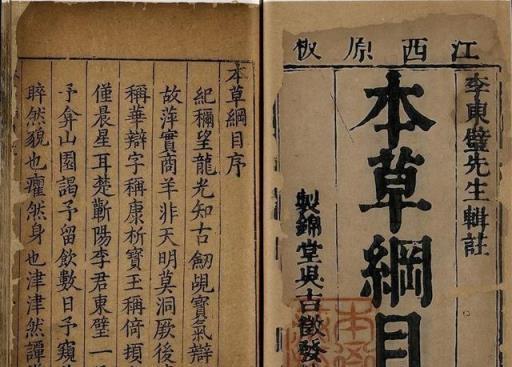 江西原板
李東璧先生輯註
本草綱目
製錦堂吳吉徵發
本草綱目序
紀稱望龍光知古劒覘寶氣辯
故萍實商羊非天明莫洞厥後
稱華辯字稱康析寶玉稱倚頓
僅晨星耳楚蘄陽李君東璧一
予弇山園謁予留飲數日予窺
睟然貌也癯然身也津津然譚